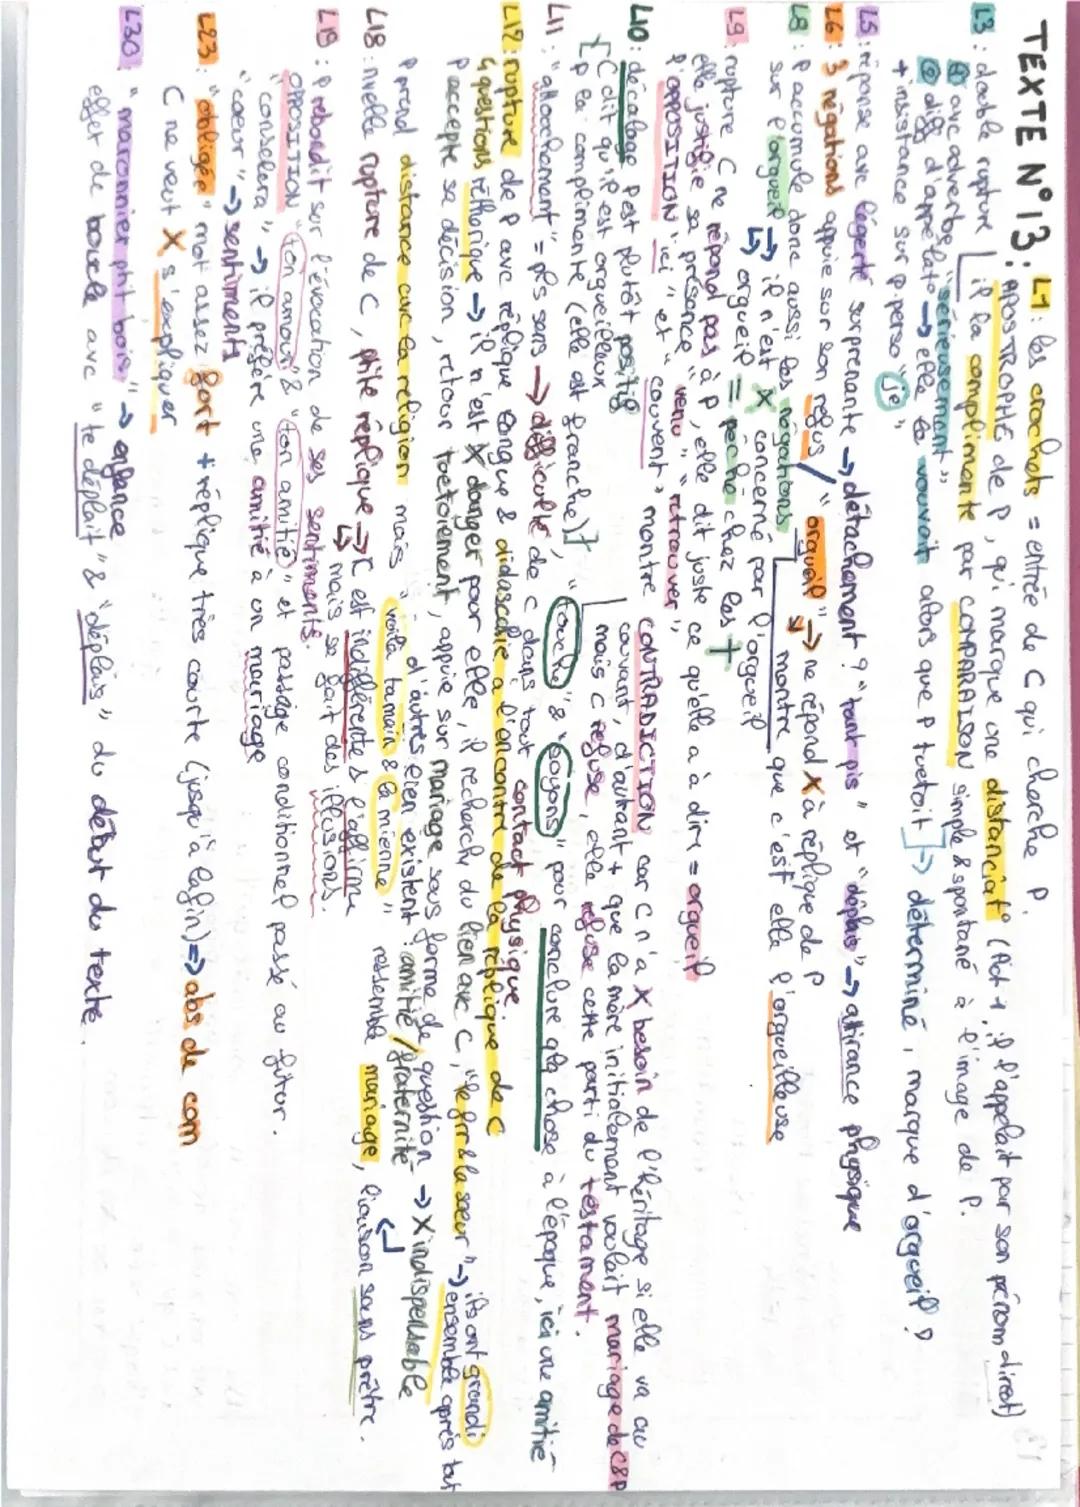 TEXTE N°13 : L1 : les crochets = entrée de C qui cherche P.
L3 : double rupture APOSTROPHE de P, qui marque une distanciat° (Act 1, il l'appelait par son prénom direct)
il la complimente par COMPARAISON simple & spontané à l'image de P.
① avec adverbe "sérieusement"
② diff d'appellat° → elle le vouvoit alors que P tuetoit ] → déterminé, marque d'orgueil ?
+ insistance sur p. perso "Je"
L5 : réponse avec légerté surprenante → détachement ? "tant pis" et "déplais" → atirance physique
L6 : 3 négations appuie sur son refus / "orgueil" → ne répond X à réplique de P
L8 : P accumule donc aussi les négations montre que c'est elle l'orgueilleuse
sur l'orgueil → il n'est X concerné par l'orgueil
↳ orgueil = péché chez les †
L9 : rupture C ne répond pas à P, elle dit juste ce qu'elle a à dire = orgueil
elle justifie sa présence "venu" "retrouver"
l'OPPOSITION "ici" et "couvent" montre CONTRADICTION car C n'a X besoin de l'héritage si elle va au
couvent, d'autant + que la mère initialement voulait mariage de C&P
mais C refuse, elle refuse cette parti du testament.
L10 : décalage P est plutôt positif
{ C dit qu'il est orgueilleux
P la complimente (elle est franche) }
L11 : "attachement" = pls sens → difficulté de C dans tout contact physique.
"touche" & "soyons" pour conclure qlq chose à l'époque, ici une amitié
L12 : rupture de P avc réplique longue & didascalie à l'encontre de la réplique de C
4 questions réthorique → il n'est X danger pour elle, il recherch du lien avc C, "le frr & la sœur" → ils ont grandi ensemble après tout
P accepte se décision, retour toetoiement, appuie sur mariage sous forme de question → X indispensable
d'autres lien existent : amitié / fraternité
P prend distance avc la religion mais "voilà ta main & la mienne" ressemble mariage, liaison sans prêtre.
L18 : nvelle rupture de C, ptite réplique → C est indifférente & l'affirm
↳ mais se fait des illusions.
L19 : P rebondit sur l'évocation de ses sentiments.
OPPOSITION "ton amour" & "ton amitié" et passage conditionnel passé au futur.
"conselera" → il préfère une amitié à un mariage
"cœur" → sentiments
L23 : "obligée" mot assez fort + réplique très courte (jusqu'à la fin) => abs de com
C ne veut X s'expliquer
L30 : "maronnier ptit bois" → enfance
effet de boucle avec "te déplait" & "déplais" du début du texte.